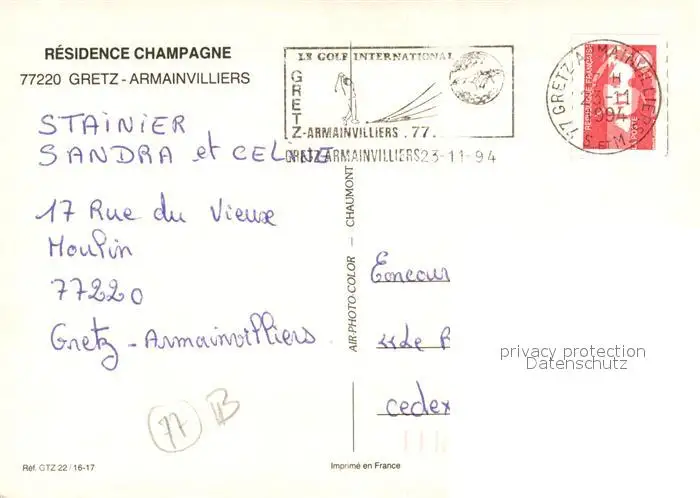 RÉSIDENCE CHAMPAGNE
77220 GRETZ - ARMAINVILLIERS
LE GOLF INTERNATIONAL
GRETZ-ARMAINVILLIERS .77.
GRETZ-ARMAINVILLIERS 23-11-94
77 GRETZ ARMAINVILLIERS
H
23-11
1994
S. ET M.
RÉPUBLIQUE FRANÇAISE
LA POSTE
STAINIER
SANDRA et CELINE
17 Rue du Vieux
Moulin
77220
Gretz - Armainvilliers
AIR-PHOTO-COLOR — CHAUMONT
Concour
"Le
cedex
privacy protection
Datenschutz
77
Réf. GTZ 22 / 16-17
Imprimé en France